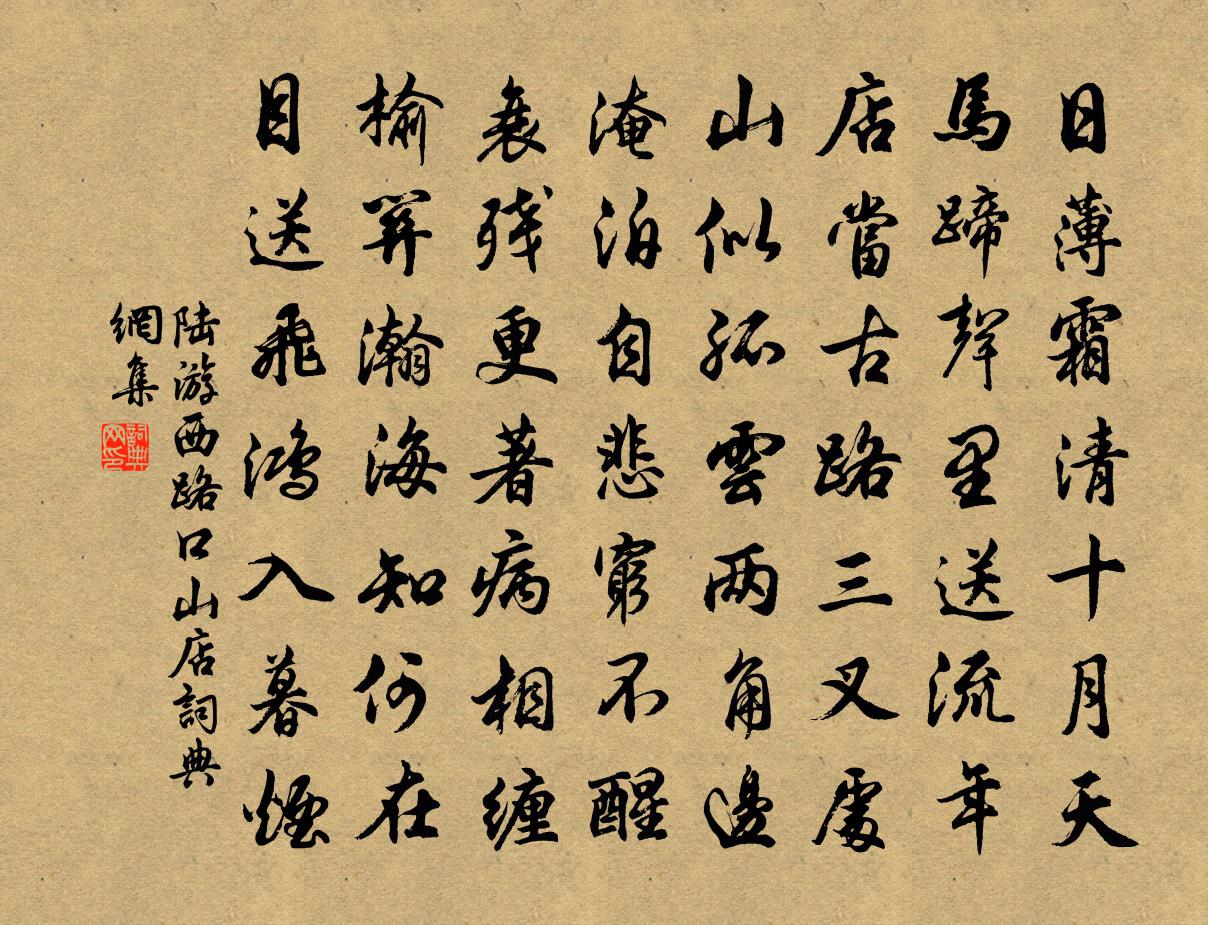 日薄霜清十月天
馬蹄聲里送流年
店當古路三叉處
山似孤雲兩角邊
淹泊自悲窮不醒
衰残更著病相缠
榆關瀚海知何在
目送飛鴻入暮煙
陆游西路口山店詞典
網集
詞典
网印